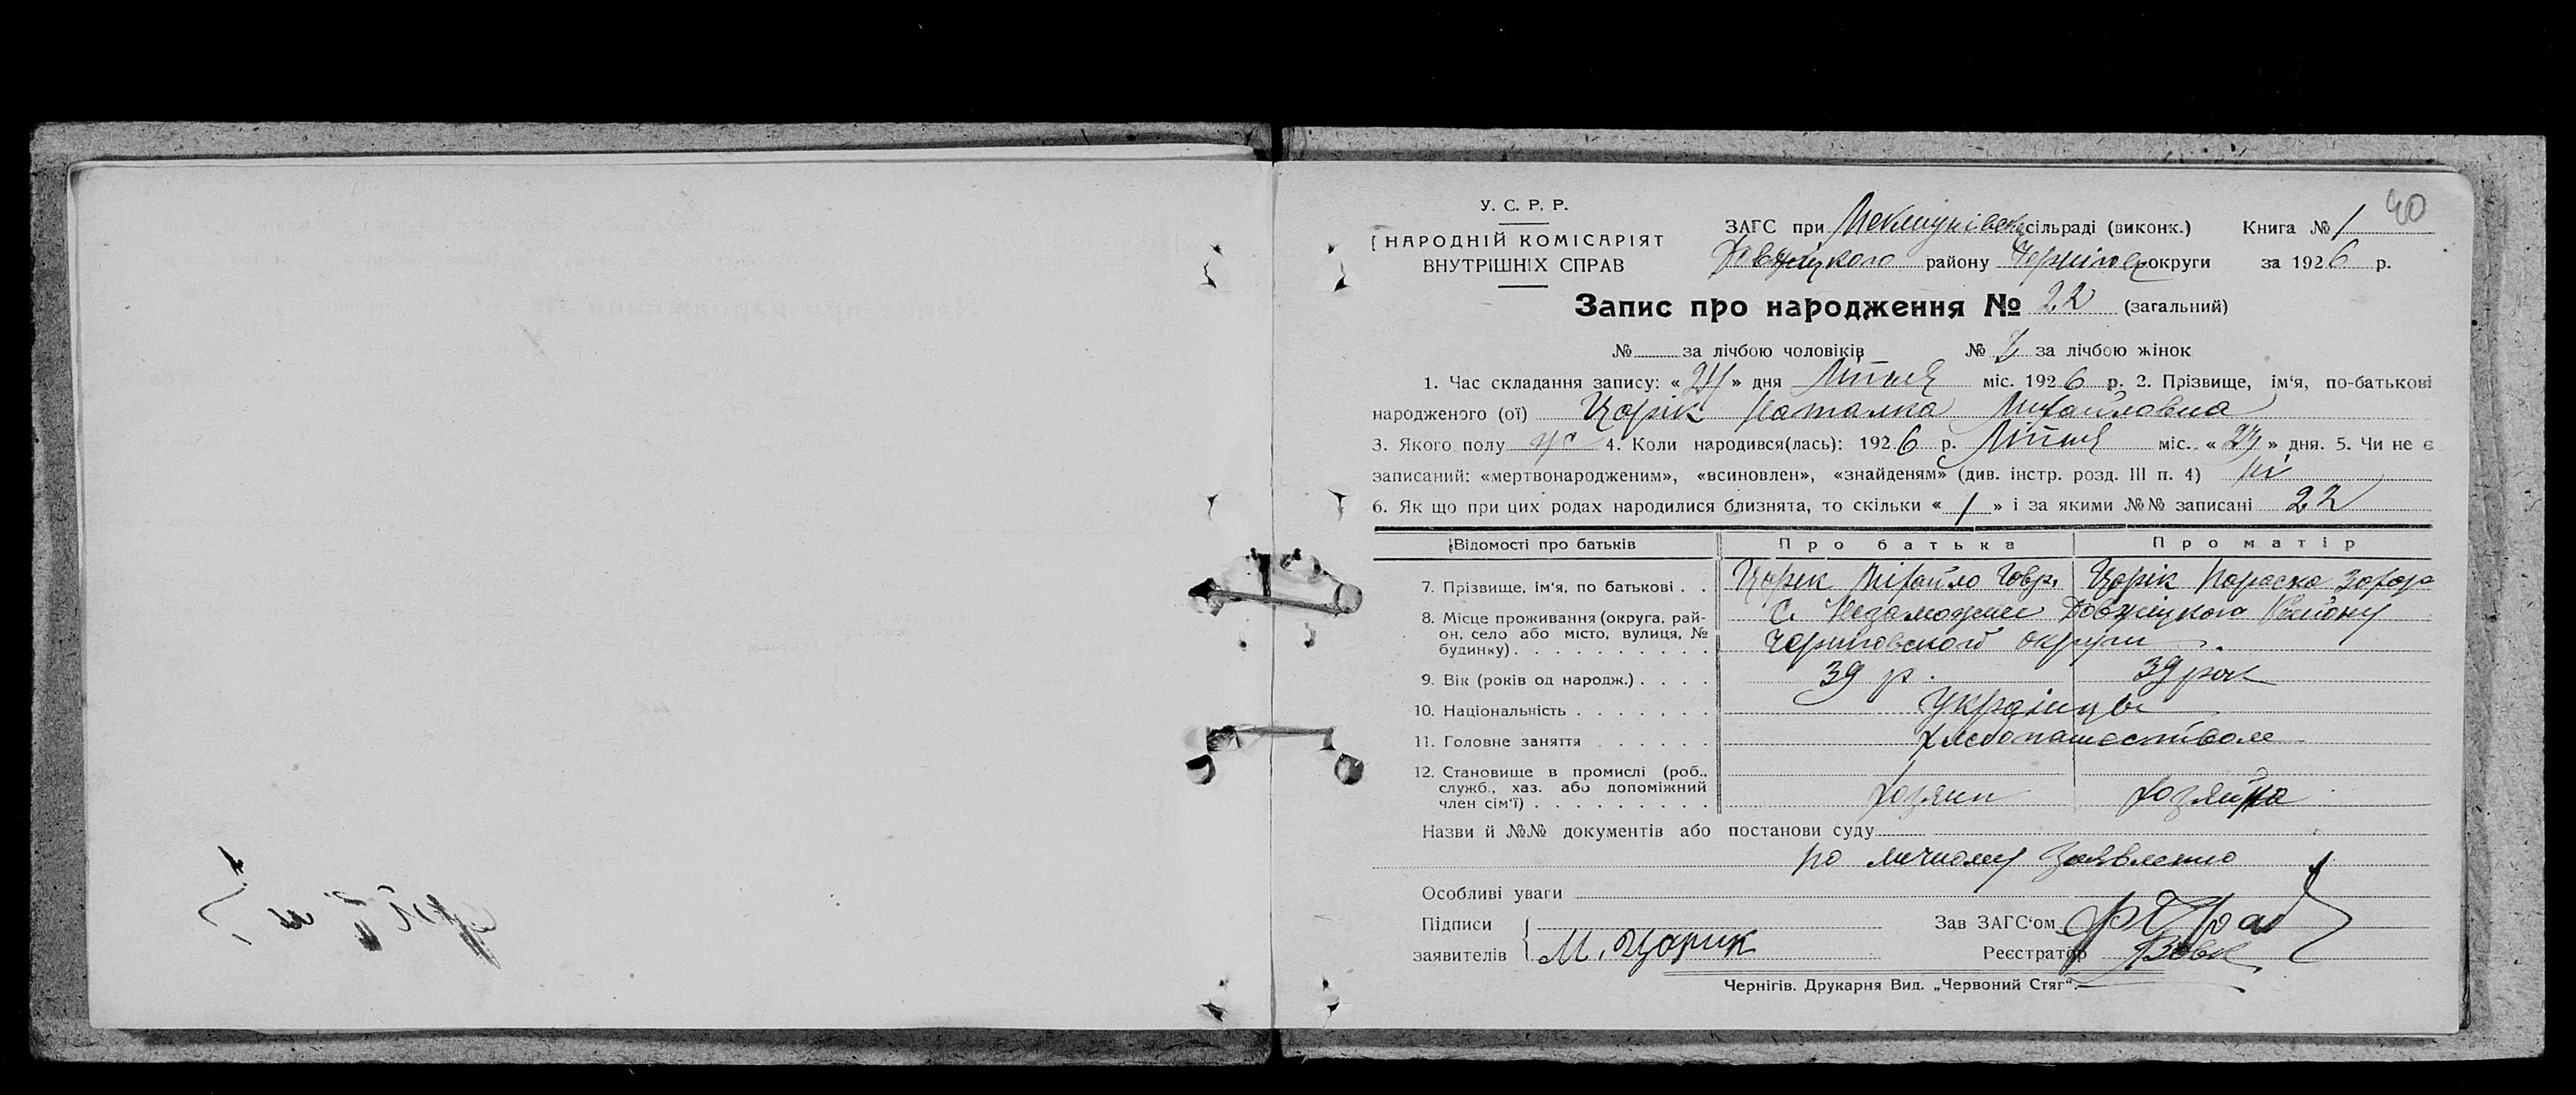 40
У. С. Р. Р.
НАРОДНІЙ КОМІСАРІЯТ
ВНУТРІШНІХ СПРАВ
ЗАГС при сільраді (виконк.) Книга № 1
району округи за 1926 р.
Запис про народження № 22 (загальний)
№ за лічбою чоловіків № за лічбою жінок
1. Час складання запису: « 24 » дня Липня міс. 1926 р. 2. Прізвище, ім‘я, по-батькові
народженого (ої) Царік Наталка Михайловна
3. Якого полу жс 4. Коли народився(лась): 1926 р. Липня міс. « 23 » дня. 5. Чи не є
записаний: «мертвонародженим», «всиновлен», «знайденям» (див. інстр. розд. III п. 4) ні
6. Як що при цих родах народилися близнята, то скільки « 1 » і за якими №№ записані 22
Відомості про батьків Про батька Про матір
7. Прізвище, ім‘я, по батькові . . Царик Міхайло Гавр. Царік Параска Захар
8. Місце проживання (округа, рай-
он, село або місто, вулиця, №
будинку) . . . . . . . . . .
С. Незаможне Району
округи
9. Вік (років од народж.) . . . . 39 р. 39 рок
10. Національність . . . . . . . Українці
11. Головне заняття . . . . . . хлебопашеством
12. Становище в промислі (роб.,
служб., хаз. або допоміжний
член сім‘ї) . . . . . . . . . хозяин хозяйка
Назви й №№ документів або постанови суду
по личному заявлению
Особливі уваги
Підписи
заявителів М. Царик
Зав ЗАГС‘ом
Реєстратор
Чернігів. Друкарня Вид. „Червоний Стяг“.